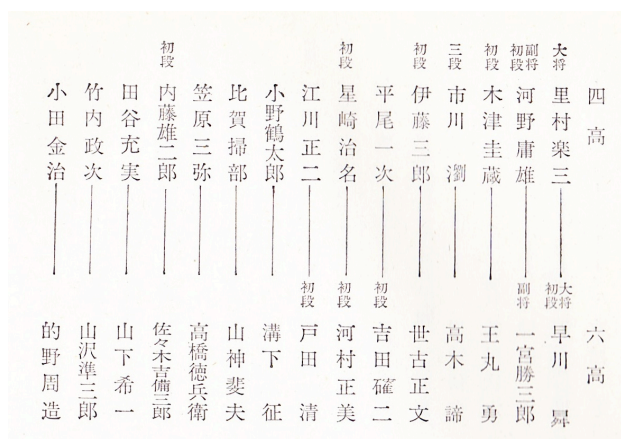 四高 六高
大将 里村楽三 大将 初段 早川昇
副将 初段 河野庸雄 副将 一宮勝三郎
初段 木津圭蔵 王丸勇
三段 市川瀏 高木諦
初段 伊藤三郎 世古正文
平尾一次 初段 吉田確二
初段 星崎治名 初段 河村正美
江川正二 初段 戸田清
小野鶴太郎 溝下征
比賀掃部 山神斐夫
笠原三弥 高橋徳兵衛
初段 内藤雄二郎 佐々木吉備三郎
田谷充実 山下希一
竹内政次 山沢準三郎
小田金治 的野周造